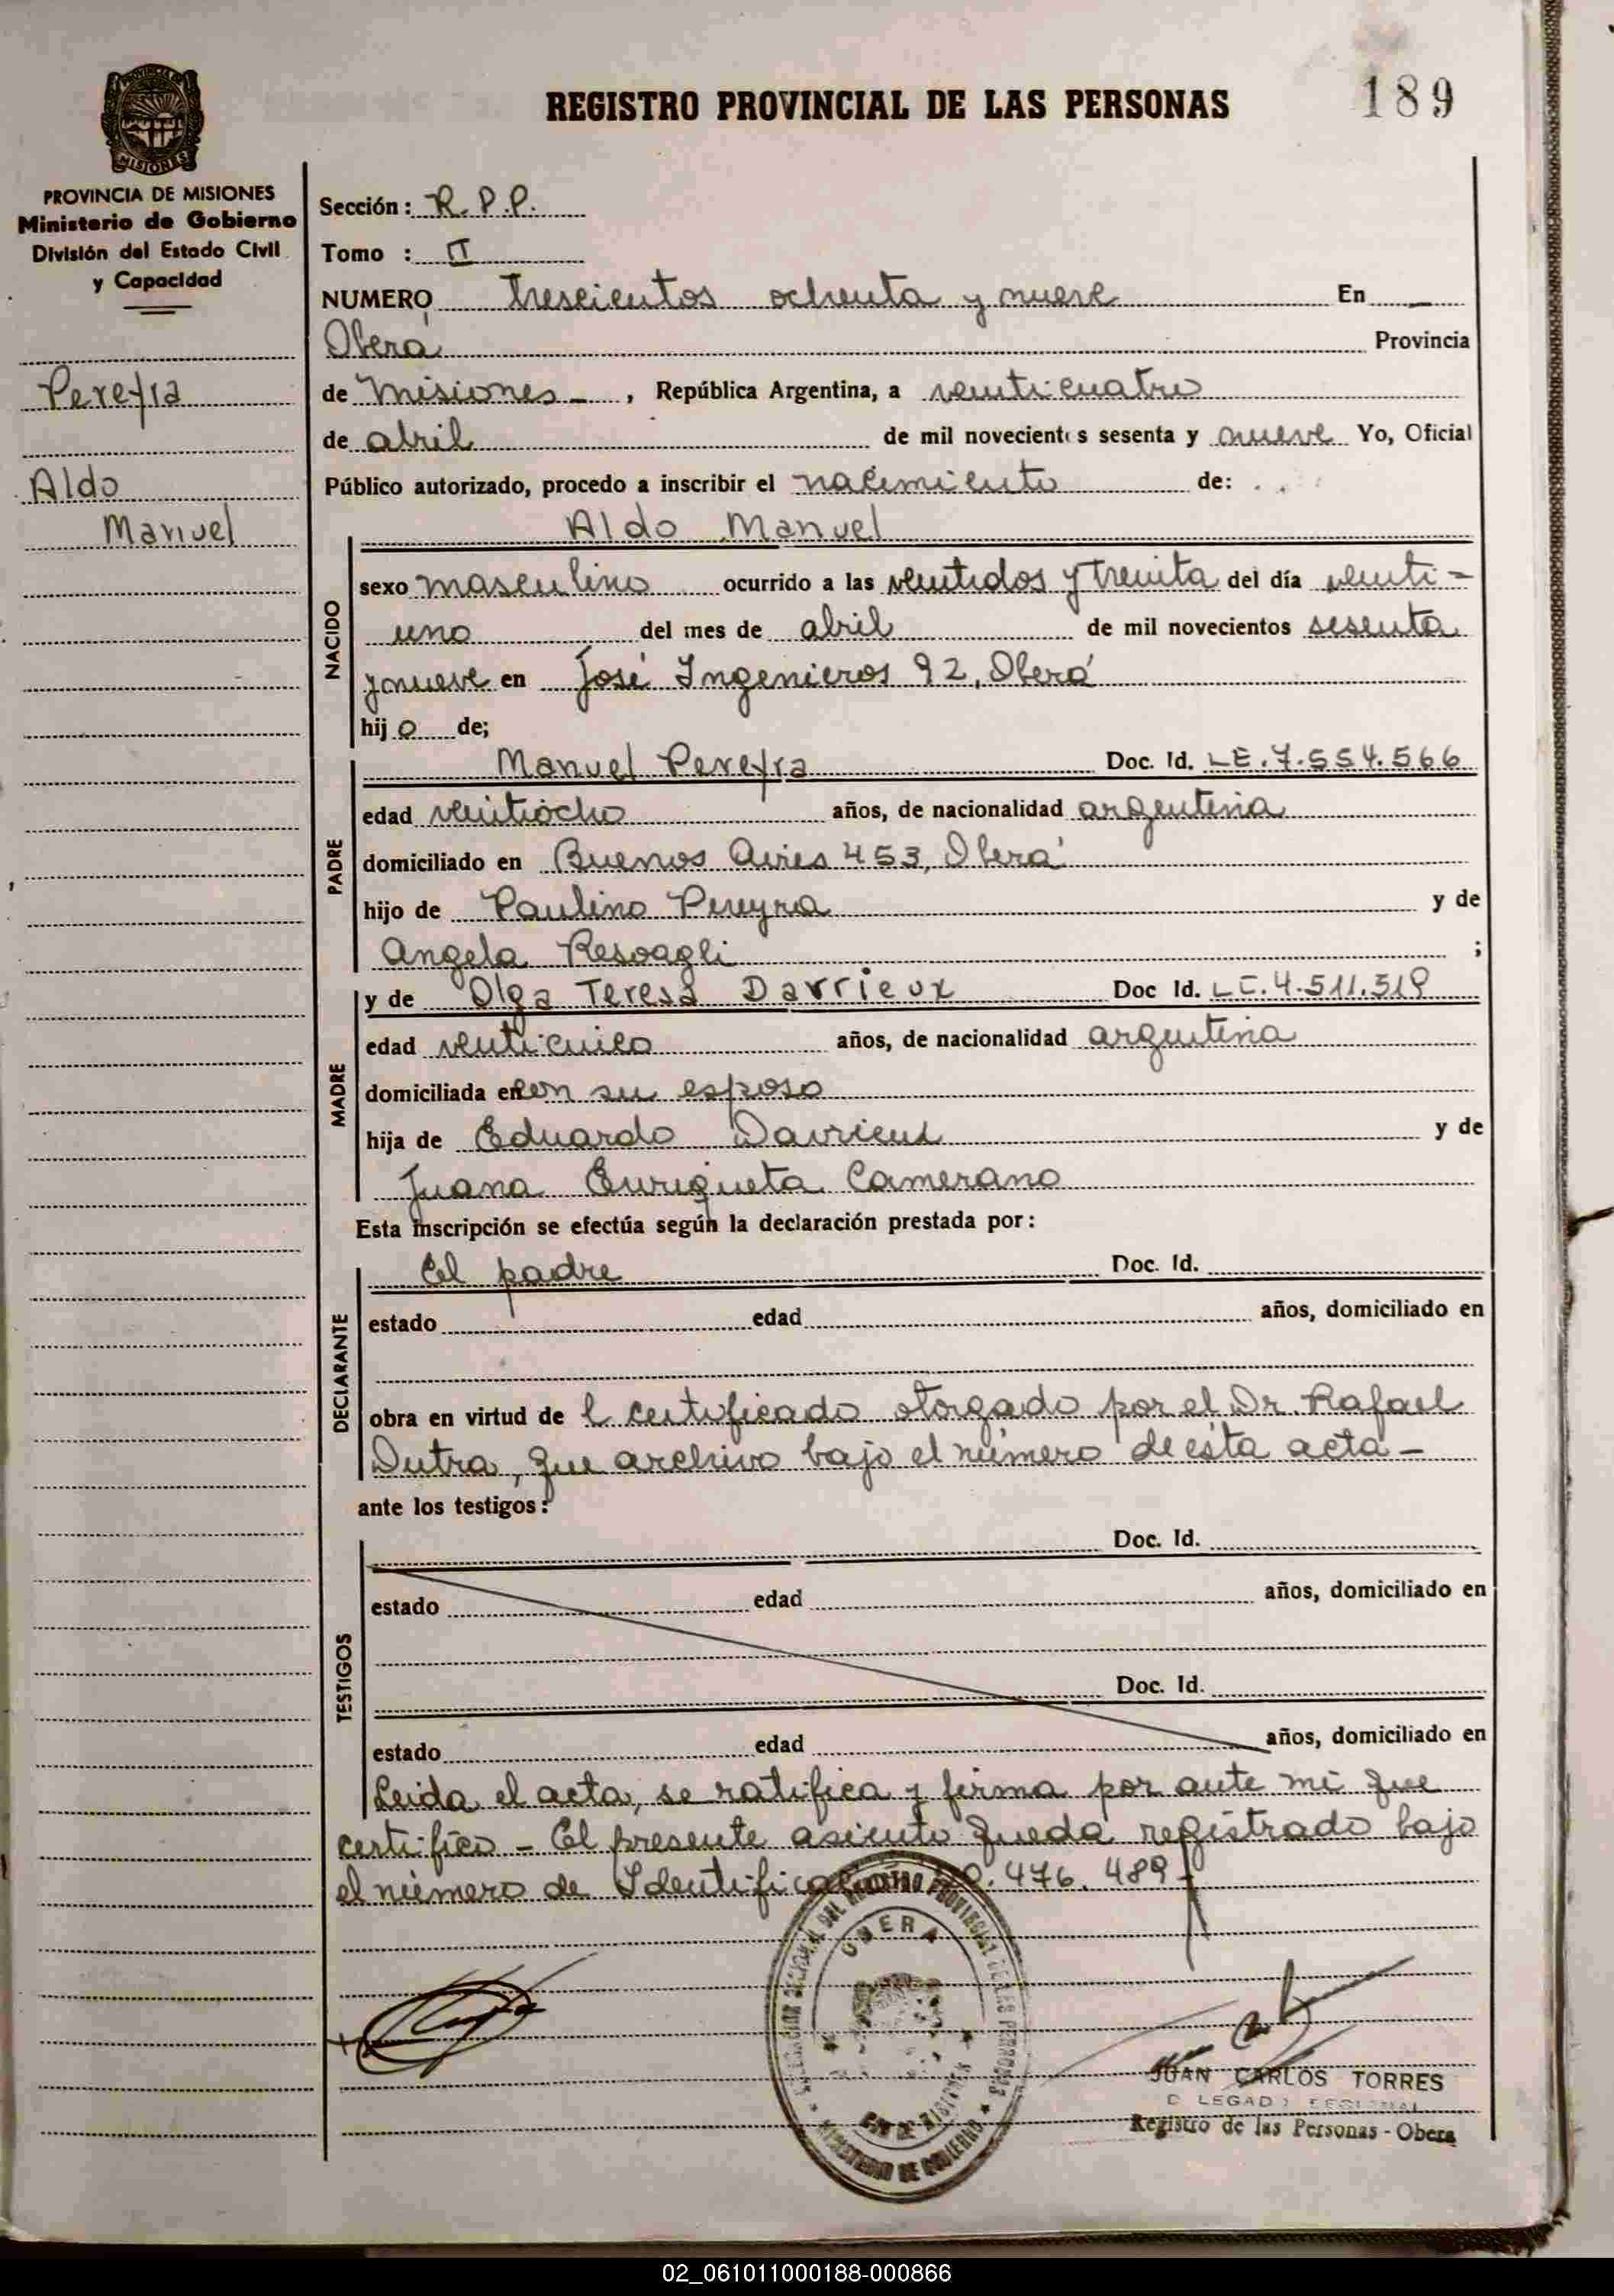 REGISTRO PROVINCIAL DE LAS PERSONAS
189
PROVINCIA DE MISIONES
MISIONES
PROVINCIA DE MISIONES
Ministerio de Gobierno
División del Estado Civil
y Capacidad
Pereyra
Aldo
Manuel
Sección: R.P.P.
Tomo : II
NUMERO Trescientos ochenta y nueve En
Oberá Provincia
de Misiones , República Argentina, a veinticuatro
de abril de mil novecientos sesenta y nueve Yo, Oficial
Público autorizado, procedo a inscribir el nacimiento de:
Aldo Manuel
NACIDO
sexo masculino ocurrido a las veintidos y treinta del día veinti-
uno del mes de abril de mil novecientos sesenta
y nueve en José Ingenieros 92, Oberá
hij o de;
PADRE
Manuel Pereyra Doc. Id. LE.7.554.566
edad veintiocho años, de nacionalidad argentina
domiciliado en Buenos Aires 453, Oberá
hijo de Paulino Pereyra y de
Angela Resoagli ;
MADRE
y de Olga Teresa Darrieux Doc Id. LC.4.511.319
edad veinticinco años, de nacionalidad argentina
domiciliada en con su esposo
hija de Eduardo Darrieux y de
Juana Enriqueta Camerano
Esta inscripción se efectúa según la declaración prestada por:
DECLARANTE
El padre Doc. Id.
estado edad años, domiciliado en
obra en virtud de l certificado otorgado por el Dr. Rafael
Dutra, que archivo bajo el número de esta acta-
ante los testigos:
TESTIGOS
Doc. Id.
estado edad años, domiciliado en
Doc. Id.
estado edad años, domiciliado en
Leida el acta, se ratifica y firma por ante mi que
certifico - El presente asiento queda registrado bajo
el número de Identificación 20.476.489-
OBERA
DEL REGISTRO PROVINCIAL DE LAS PERSONAS
MINISTERIO DE GOBIERNO
JUAN CARLOS TORRES
Registro de las Personas - Obera
02_061011000188-000866